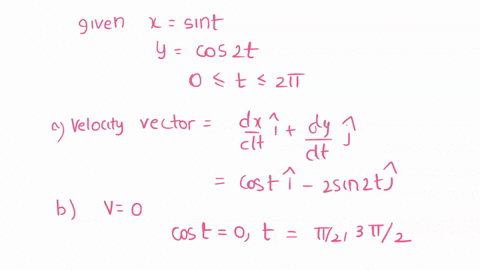 given x = sint
y = cos2t
0 ≤ t ≤ 2π
a) Velocity vector = dx/dt î + dy/dt ĵ
= cost î - 2sin2t ĵ
b) V=0
cost=0, t = π/2, 3π/2